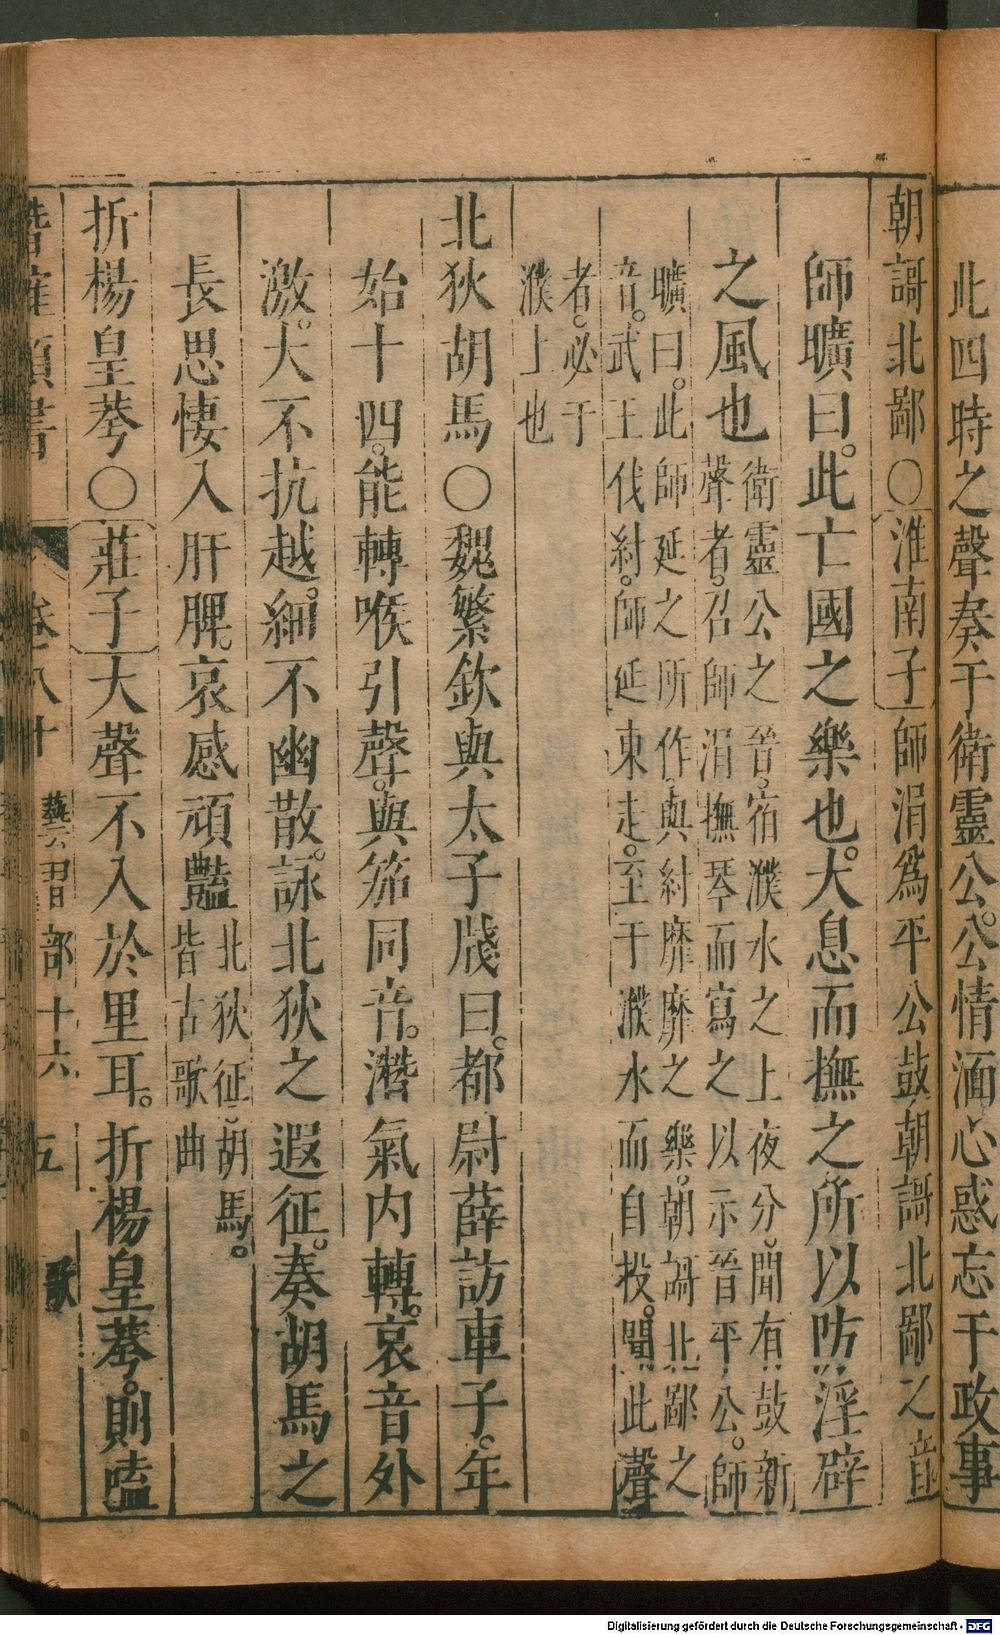 此四時之聲奏于衛靈公。公情湎心惑忘于政事
朝謌北鄙○淮南子師涓爲平公鼓朝謌北鄙之音
師曠曰。此亡國之樂也。大息而撫之所以防淫辟
之風也
衛靈公之晉。宿濮水之上夜分。聞有鼓新
聲者。召師涓撫琴而寫之以示晉平公。師
曠曰。此師延之所作。與紂靡靡之樂。朝謌北鄙之
音。武王伐紂。師延東走。至于濮水而自投。聞此聲
者。必于
濮上也
北狄胡馬○魏繁欽與太子牋曰。都尉薛訪車子。年
始十四。能轉喉引聲。與笳同音。潛氣内轉。哀音外
激。大不抗越。細不幽散。詠北狄之遐征。奏胡馬之
長思悽入肝脾。哀感頑豔
北狄征。胡馬。
皆古歌曲
折楊皇荂○莊子大聲不入於里耳。折楊皇荂。則嗑
卷之八十 藝習部十六 五 歌
Digitalisierung gefördert durch die Deutsche Forschungsgemeinschaft - DFG